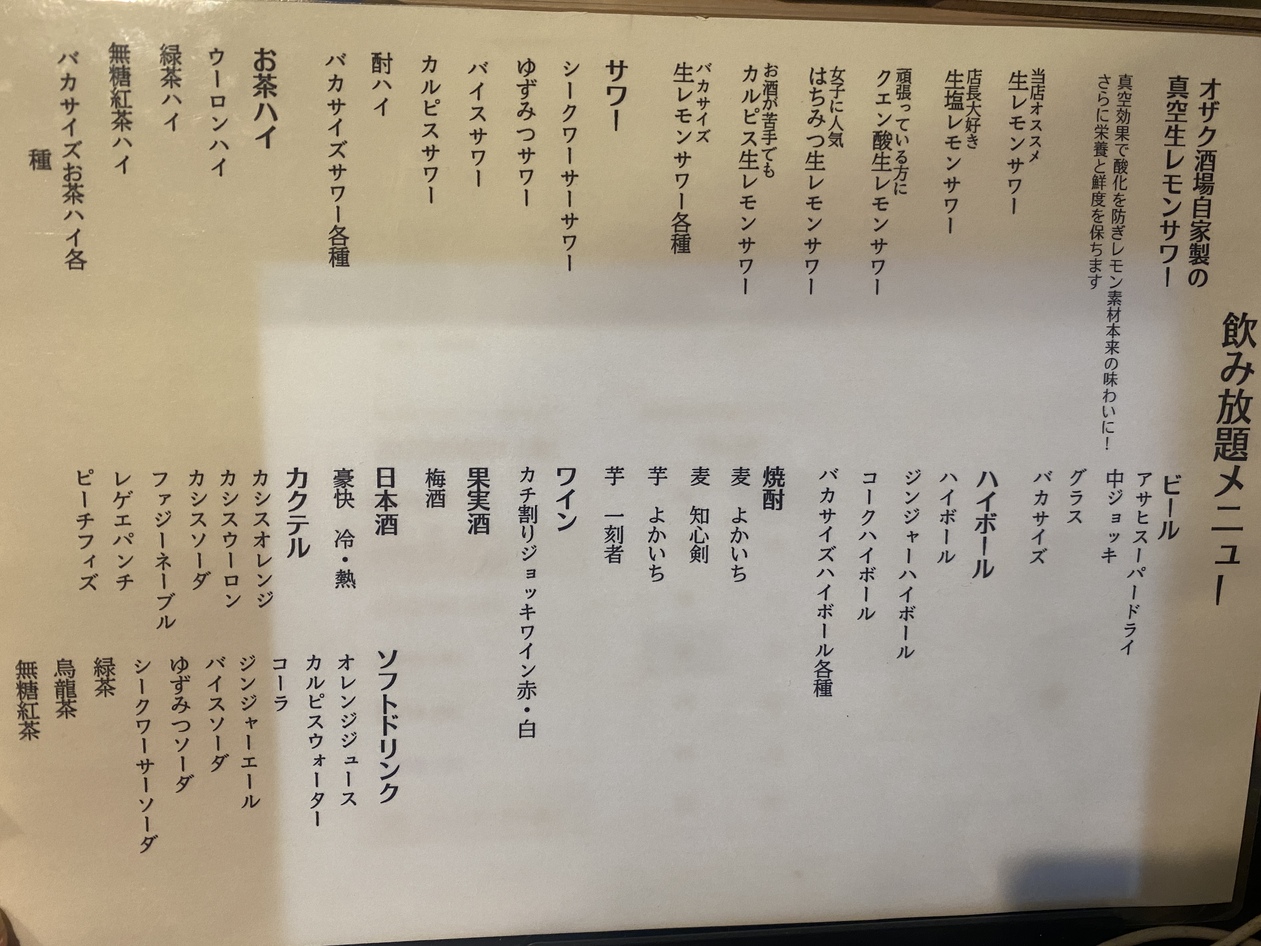 飲み放題メニュー
オザク酒場自家製の
真空生レモンサワー
真空効果で酸化を防ぎレモン素材本来の味わいに！
さらに栄養と鮮度を保ちます
当店オススメ
生レモンサワー
店長大好き
生塩レモンサワー
頑張っている方に
クエン酸生レモンサワー
女子に人気
はちみつ生レモンサワー
お酒が苦手でも
カルピス生レモンサワー
バカサイズ
生レモンサワー各種
サワー
シークワーサーサワー
ゆずみつサワー
バイスサワー
カルピスサワー
酎ハイ
バカサイズサワー各種
お茶ハイ
ウーロンハイ
緑茶ハイ
無糖紅茶ハイ
バカサイズお茶ハイ各
種
ビール
アサヒスーパードライ
中ジョッキ
グラス
バカサイズ
ハイボール
ハイボール
ジンジャーハイボール
コークハイボール
バカサイズハイボール各種
焼酎
麦 よかいち
麦 知心剣
芋 よかいち
芋 一刻者
ワイン
カチ割りジョッキワイン赤・白
果実酒
梅酒
日本酒
豪快 冷・熱
カクテル
カシスオレンジ
カシスウーロン
カシスソーダ
ファジーネーブル
レゲエパンチ
ピーチフィズ
ソフトドリンク
オレンジジュース
カルピスウォーター
コーラ
ジンジャーエール
バイスソーダ
ゆずみつソーダ
シークワーサーソーダ
緑茶
烏龍茶
無糖紅茶